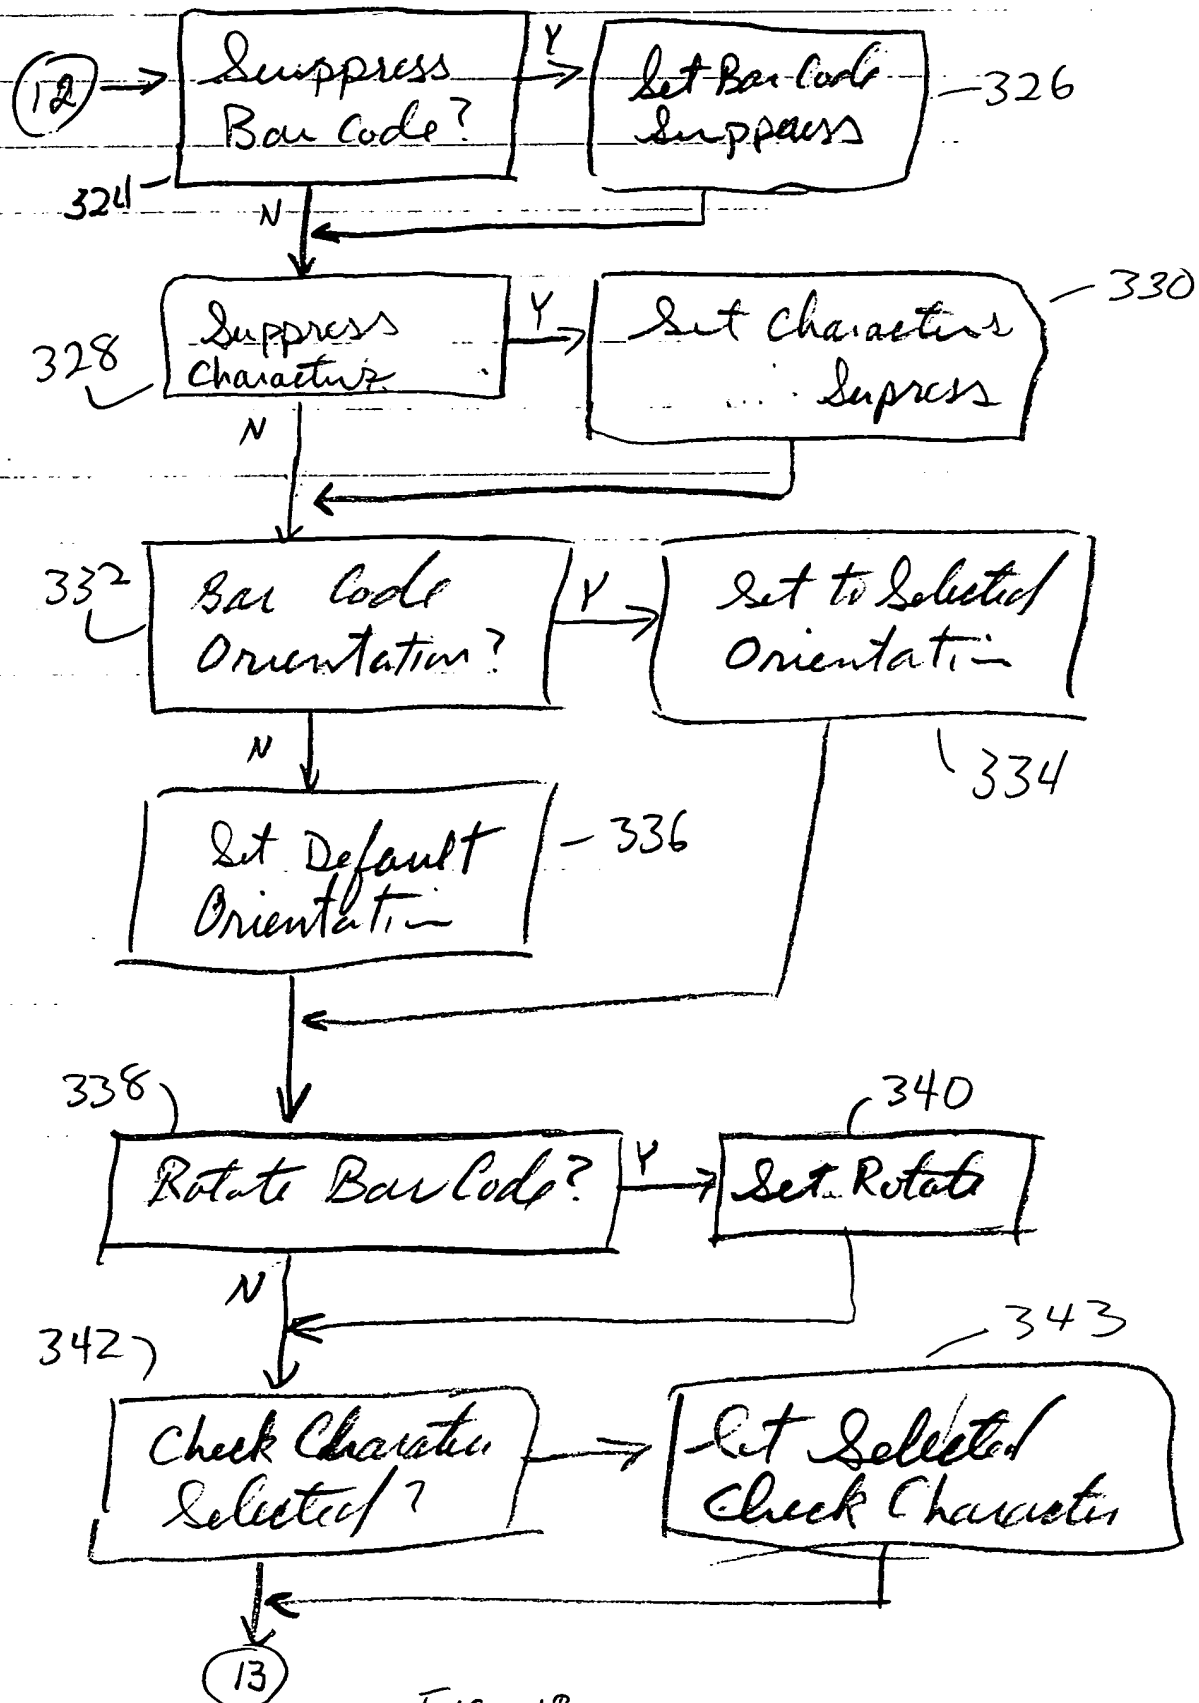 12
Suppress
Bar Code?
Y
Set Bar Code
Suppress
326
324
N
Suppress
Characters
Y
Set Characters
Supress
330
328
N
Bar Code
Orientation?
Y
Set to Selected
Orientation
332
334
N
Set Default
Orientation
336
338
340
Rotate Bar Code?
Y
Set Rotate
N
342
343
Check Character
Selected?
Set Selected
Check Character
13